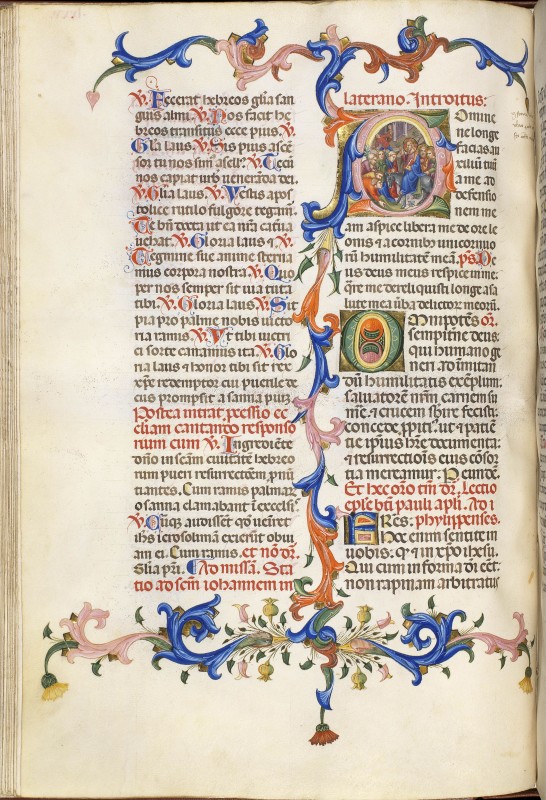 ℣. Fecerat hebreos glia san
guis almi. ℣. Nos facit he
breos transitus ecce pius. ℣.
Glia laus. ℣. Sis pius ascē
sor tu nos simus aselli. ℣. Tecū
nos capiat urbs veneranda dei.
℣. Glia laus. ℣. Vestis apos
tolice rutilo fulgore tegant.
Te bn̄ texta ut ea nr̄a cat̄ua
vehat. ℣. Gloria laus τ ℣.
Tegmine sue anime sterni
mus corpora nostra. ℣. Quo
per nos semper sit uia tuta
tibi. ℣. Gloria laus ℣. Sit
pia pro palme nobis uicto
ria ramis. ℣. Vt tibi uictri
ci sorte canamus ita. ℣. Glo
ria laus τ honor tibi sit rex
xp̄e redemptor cui puerile de
cus prompsit osanna pium.
Postea intrat processio ec
cl̄iam cantando responso
rium cum ℣. Ingrediente
dn̄o in scām ciuitatē hebreo
rum pueri resurrectōem pnū
tiantes. Cum ramis palmaꝝ
osanna clamabant ī excelsis.
℣. Cūq; audissēt qꝛ uēiret
ihs ierosolimam exierūt obui
am ei. Cum ramis. et nō dr̄.
Glia pr̄i. Ad missam. Sta
tio ad scm̄ iohannem in
laterano. Introitus:
Domine
ne longe
facias au
xiliū tuū
a me ad
defensio
nem me
am aspice libera me de ore le
onis τ a cornibꝰ unicornuo
rū humilitatē meā. ps. De
us deus meus respice in me:
quare me dereliquisti longe a sa
lute mea ūba delictoꝝ meoꝝ.
Omnipotēs or̄.
sempitne deus:
qui humano ge
neri ad imitan
dū humilitatis exēplum.
saluatorē nr̄m carnem su
me. τ crucem sbire fecisti:
concede ppiti. ut τ patiēn
tie ipius hr̄e documenta:
τ resurrectiōis eius cōsor
tia mereamur. Per eundē.
Et hec or̄o tm̄ dr̄. Lectio
eple bt̄i pauli apl̄i. Ad
phylippenses.
Fratres:
Hoc enim sentite in
uobis: qd̄ τ in xpo ihesu.
Qui cum in forma dī eēt:
non rapinam arbitratus